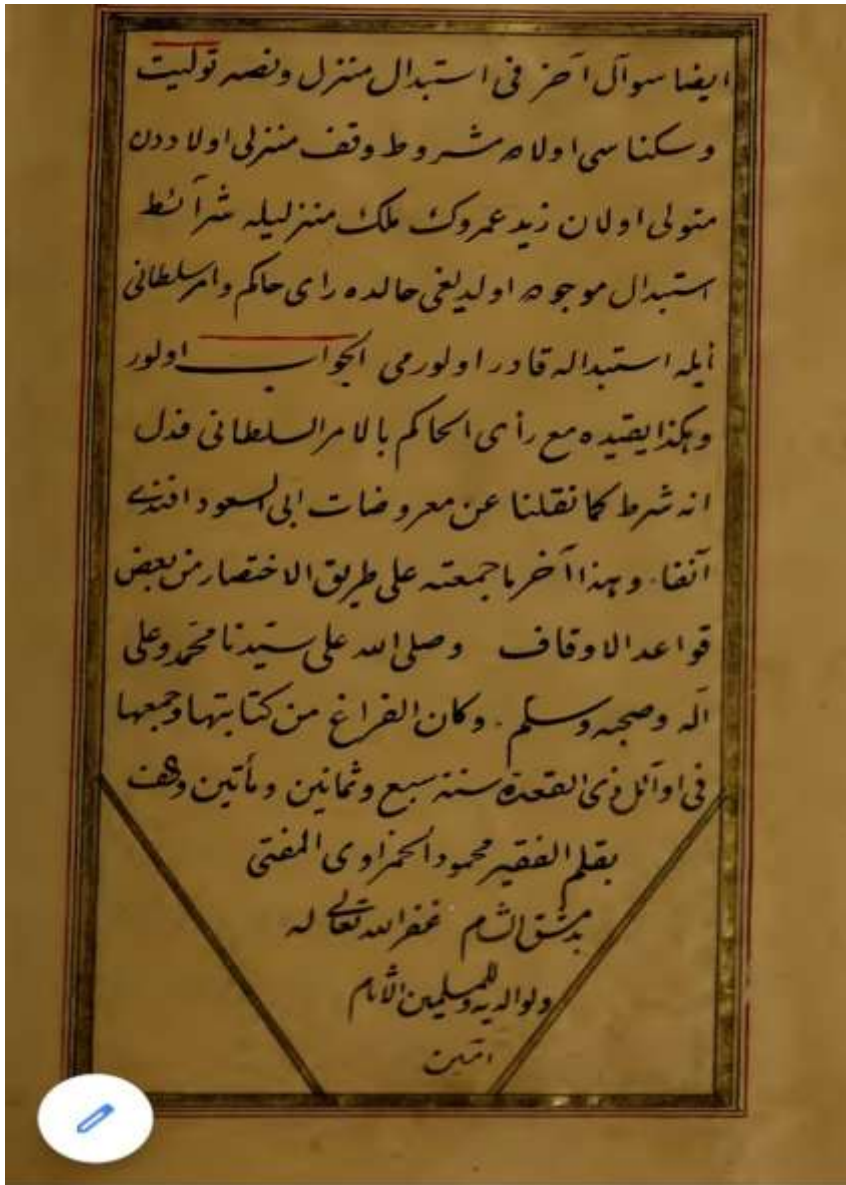 ايضا سوآل آخر فى استبدال منزل ونصه توليت
وسكناسى اولاده مشروط وقف منزلى اولاددن
متولى اولان زيد عمروك ملك منزليله شرآئط
استبدال موجوده اولديغى حالده راى حاكم وامر سلطانى
ايله استبداله قادر اولورمى الجواب اولور
وهكذا يقيده مع رأى الحاكم بالامر السلطانى فدل
انه شرط كما نقلنا عن معروضات ابى السعود افندى
آنفا. وهذا آخر ما جمعته على طريق الاختصار من بعض
قواعد الاوقاف وصلى الله على سيدنا محمد وعلى
آله وصحبه وسلم. وكان الفراغ من كتابتها وجمعها
فى اوآئل ذى القعدة سنة سبع وثمانين ومأتين والف
بقلم الفقير محمود الحمزاوى المفتى
بدمشق الشام غفر الله تعالى له
ولوالديه وللمسلمين
امين